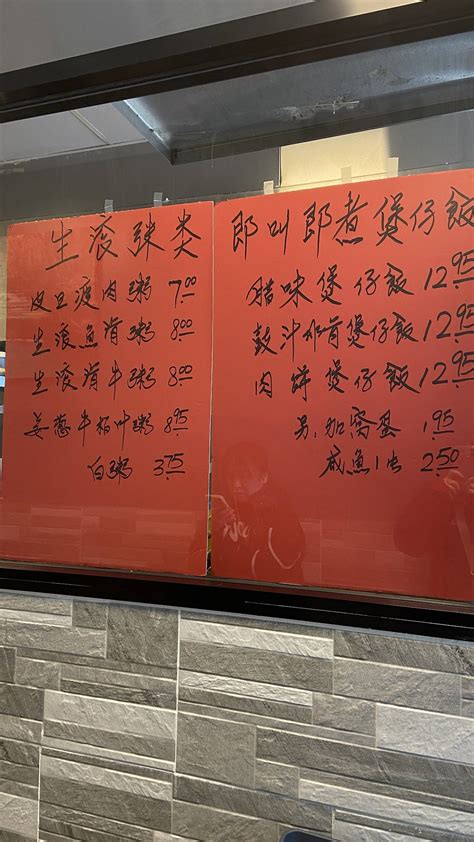 生滚粥类
皮旦瘦肉粥 7.00
生滚魚滑粥 8.00
生滚滑牛粥 8.00
姜葱牛柏叶粥 8.95
白粥 3.75
即叫即煮煲仔飯
腊味煲仔飯 12.95
鼓汁水肯煲仔飯 12.95
肉饼煲仔飯 12.95
另,加窩蛋 1.95
咸魚1虫 2.50